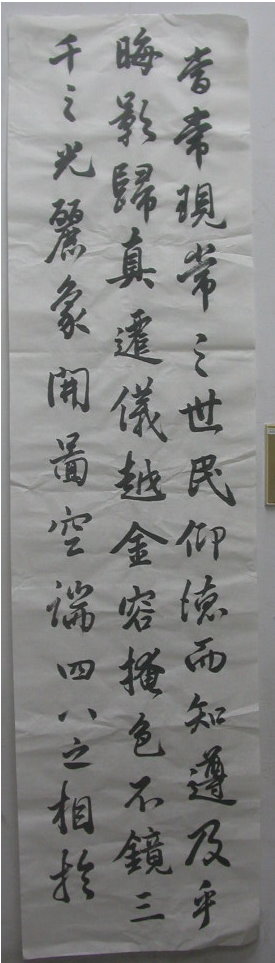 當常現常之世民仰德而知遵及乎
晦影歸真遷儀越金容掩色不鏡三
千之光麗象開圖空端四八之相於